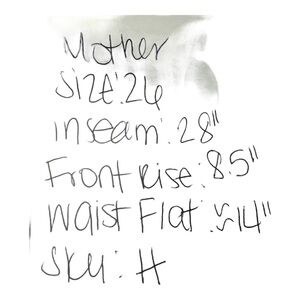 Mother
Size: 26
inseam: 28"
Front Rise: 8.5"
Waist Flat: ~14"
SKU: H